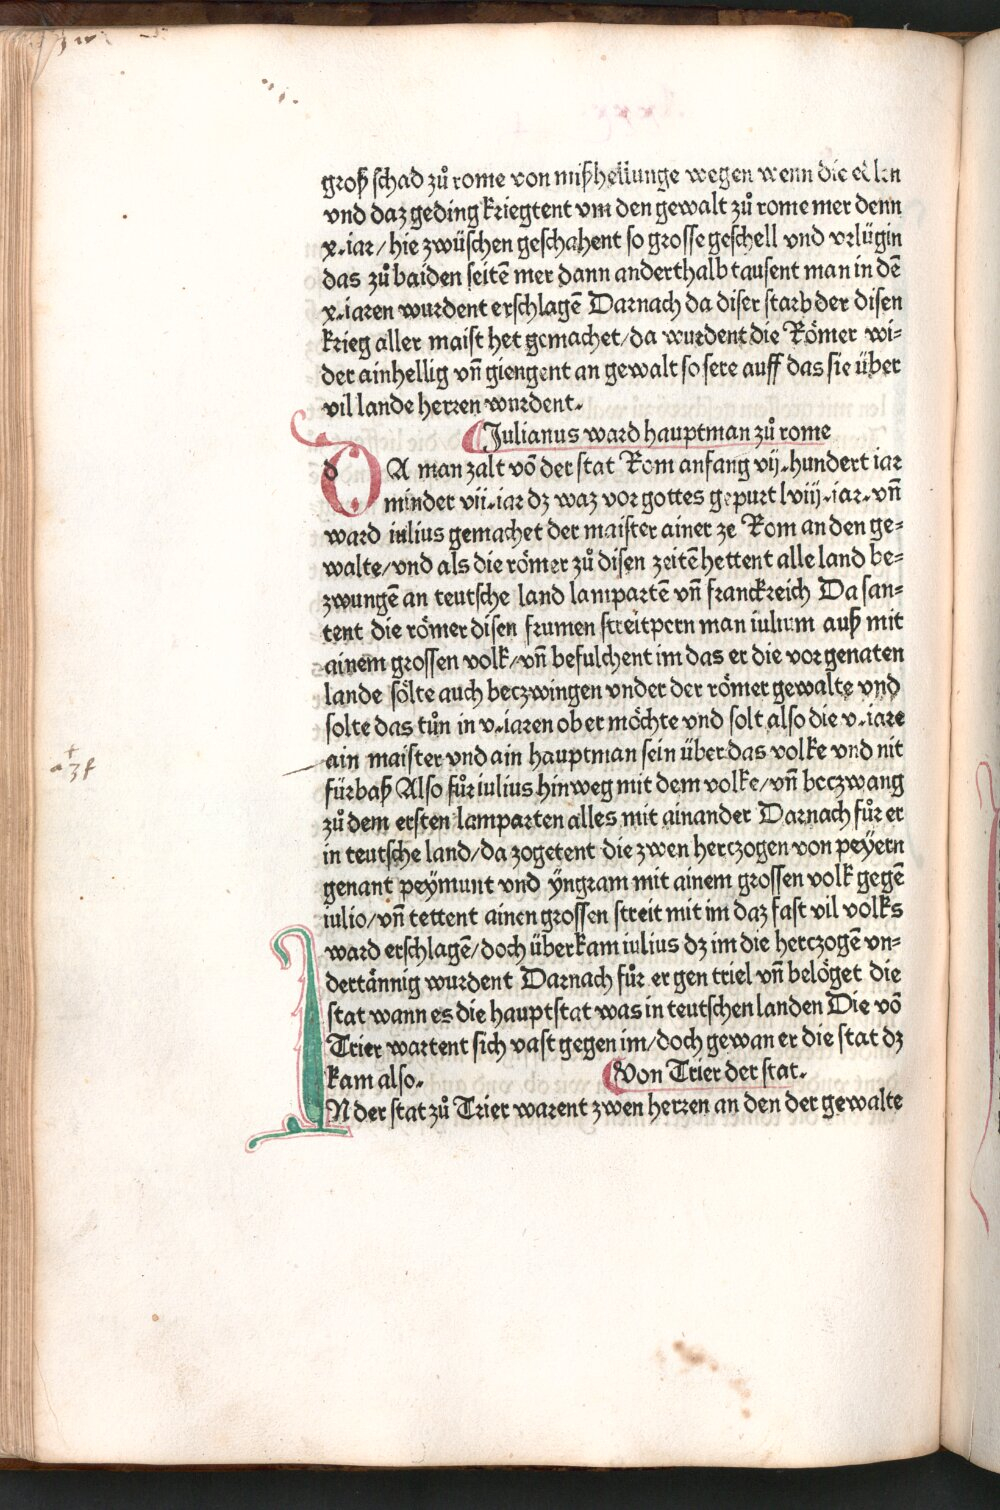 groß schad zů rome von mißhellunge wegen wenn die edlen
vnd daz geding kriegtent vm den gewalt zů rome mer denn
x.iar/hie zwüschen geschahent so grosse geschell vnd vrlügin
das zů baiden seitē mer dann anderthalb tausent man in dē
x.iaren wurdent erschlagē Darnach da diser starb der disen
krieg aller maist het gemachet/da wurdent die Römer wi-
der ainhellig vn̄ giengent an gewalt so sere auff das sie über
vil lande herren wurdent.
Julianus ward hauptman zů rome
DA man zalt vō der stat Rom anfang vij.hundert iar
minder vii.iar dz waz vor gottes gepurt lviij.iar.vn̄
ward iulius gemachet der maister ainer ze Rom an den ge-
walte/vnd als die römer zů disen zeitē hettent alle land be-
zwungē an teutsche land lampartē vn̄ franckreich Da san-
tent die römer disen frumen streitpern man iulium auß mit
ainem grossen volk/vn̄ befulchent im das er die vorgenaten
lande sölte auch beczwingen vnder der römer gewalte vnd
solte das tůn in v.iaren ob er möchte vnd solt also die v.iare
ain maister vnd ain hauptman sein über das volke vnd nit
fürbaß Also fůr iulius hinweg mit dem volke/vn̄ beczwang
zů dem ersten lamparten alles mit ainander Darnach fůr er
in teutsche land/da zogetent die zwen herczogen von peyern
genant peymunt vnd yngram mit ainem grossen volk gegē
iulio/vn̄ tettent ainen grossen streit mit im daz fast vil volks
ward erschlagē/doch überkam iulius dz im die herczogē vn-
dertännig wurdent Darnach fůr er gen triel vn̄ belöget die
stat wann es die hauptstat was in teutschen landen Die vō
Trier wartent sich vast gegen im/doch gewan er die stat dz
kam also.
Von Trier der stat.
IN der stat zů Trier warent zwen herren an den der gewalte